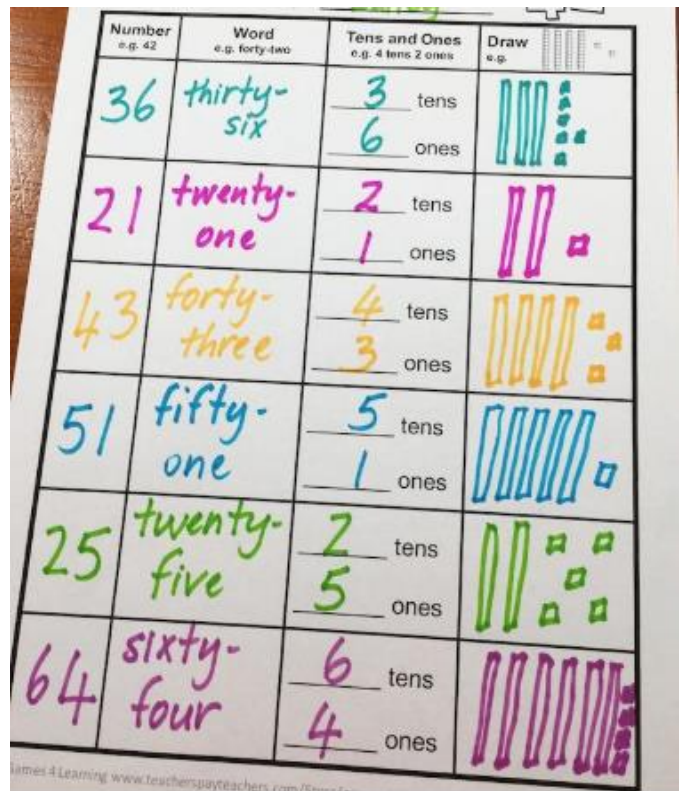 Number Word Tens and Ones Draw
e.g. 42 e.g. forty-two e.g. 4 tens 2 ones e.g.
36 thirty-
six
3 tens
6 ones
21 twenty-
one
2 tens
1 ones
43 forty-
three
4 tens
3 ones
51 fifty-
one
5 tens
1 ones
25 twenty-
five
2 tens
5 ones
64 sixty-
four
6 tens
4 ones
Games 4 Learning www.teacherspayteachers.com/Store/